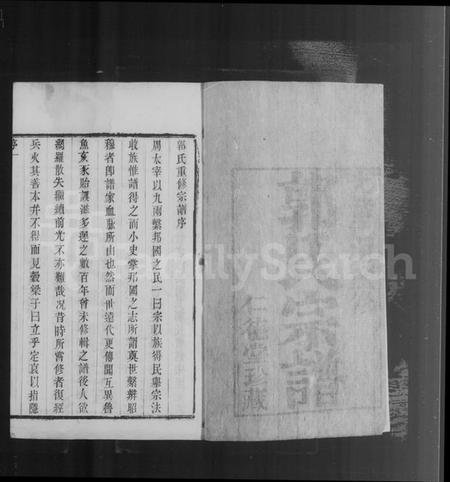 郭氏重修宗譜序
周太宰以九兩繫邦國之民一曰宗以族得民舉宗法
收族惟譜得之而小史掌邦國之志所謂奠世繫辨昭
穆者卽譜家血脉所由也然而世遠代更傳聞互異魯
魚亥豕貽誤滋多迎之數百年曾未修輯之譜後人欲
網羅散失纘續前光不亦難哉况昔時所嘗修者復經
兵火其善本并不得而見穀梁子曰立乎定哀以指隱
序 一
宗譜
仁德堂珍藏
FamilySearch